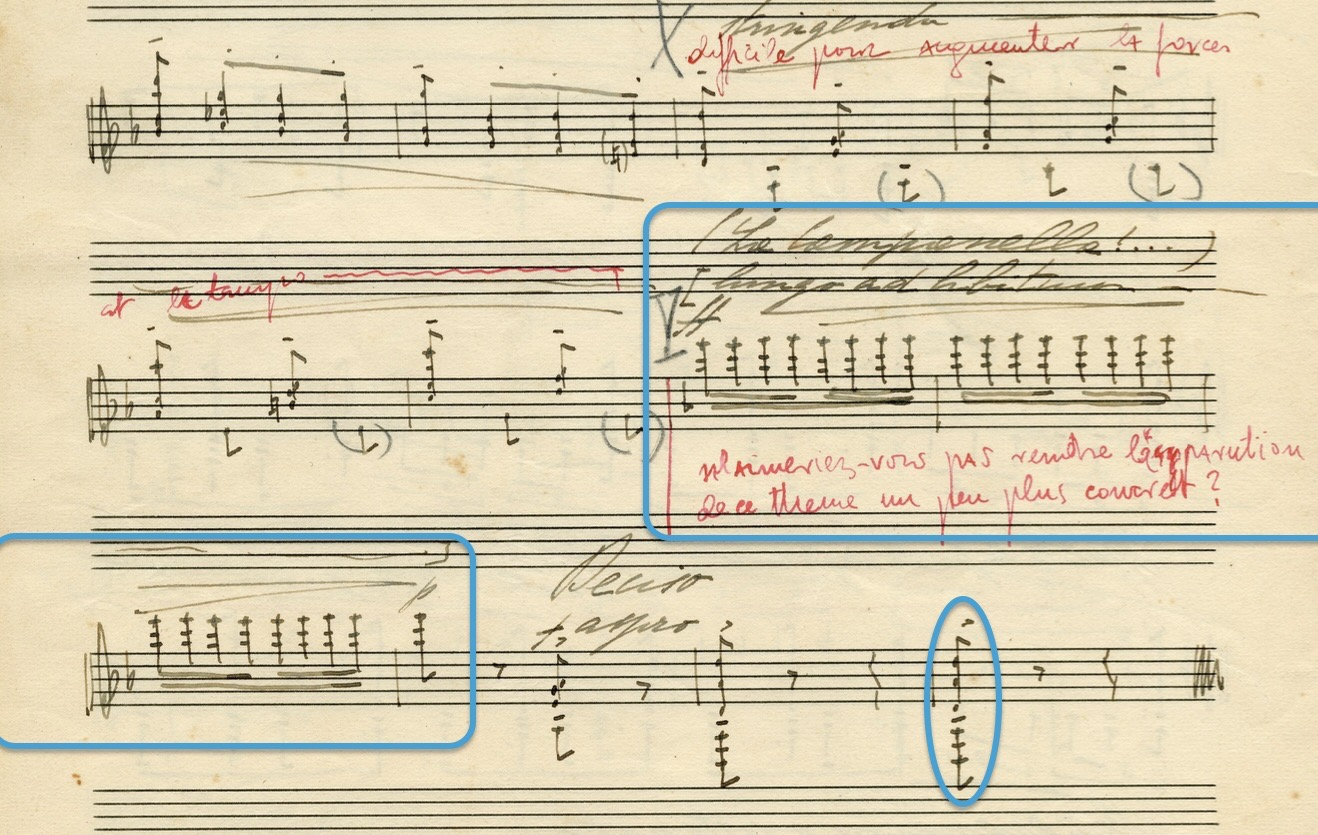 stringendo
difficile pour augmenter la forces
le tempo
(La Campanella!... )
[lungo ad libitum
ff
n'aimeriez-vous pas rendre l'apparution
de ce theme un peu plus concret ?
]
p
Deciso
aspro